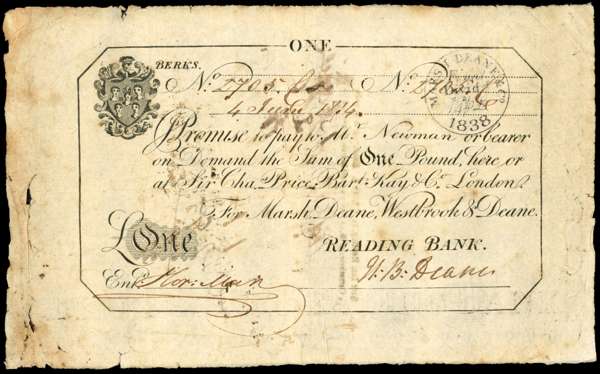 ONE
BERKS.
No. 2705. No. 270
4 June 1814.
Promise to pay to Mr. Newman or bearer
on Demand the Sum of One Pound, here or
at Sir Cha. Price, Bart. Kay & Co. London.
For Marsh, Deane, Westbrook & Deane.
£One READING BANK.
Entd.
H. B. Deane
DEANE & Co
1838